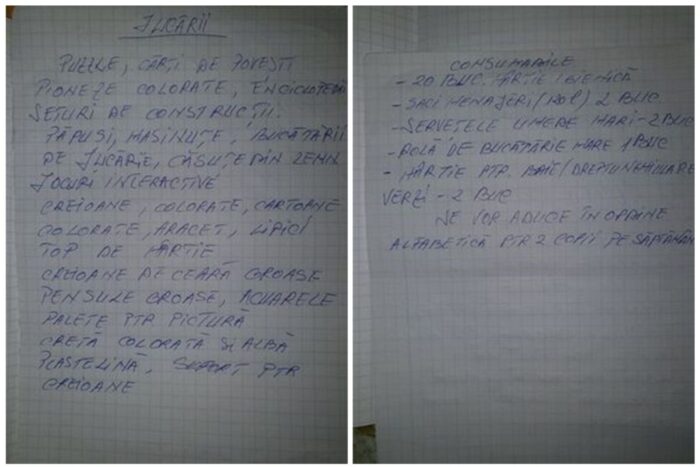 JUCĂRII
PUZZLE, CĂRȚI DE POVEȘTI
PIONEZE COLORATE, ENCICLOPEDII
SETURI DE CONSTRUCȚII.
PĂPUȘI, MAȘINUȚE, BUCĂTĂRII
DE JUCĂRIE, CĂSUȚE DIN LEMN
JOCURI INTERACTIVE
CREIOANE, COLORATE, CARTOANE
COLORATE, ARACET, LIPICI
TOP DE HÂRTIE
CREIOANE DE CEARĂ GROASE
PENSULE GROASE, ACUARELE
PALETE PTR PICTURĂ
CRETĂ COLORATĂ ȘI ALBĂ
PLASTELINĂ, SUPORT PTR
CREIOANE
CONSUMABILE
- 20 BUC. HÂRTIE IGIENICĂ
- SACI MENAJERI (ROL) 2 BUC.
- SERVEȚELE UMEDE MARI - 2 BUC
- ROLĂ DE BUCĂTĂRIE MARE 1 BUC
- HÂRTIE PTR. BAIE/DREPTUNGHIULARE
VERZI - 2 BUC
SE VOR ADUCE ÎN ORDINE
ALFABETICĂ PTR 2 COPII PE SĂPTĂMÂN